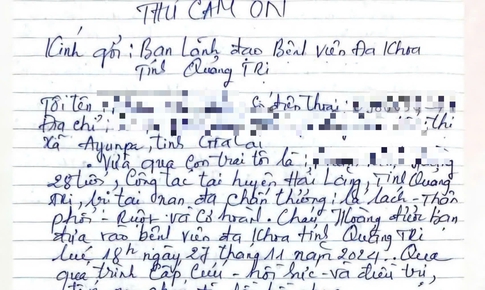 THƯ CẢM ƠN
Kính gởi: Ban Lãnh đạo Bệnh viện Đa Khoa
Tỉnh Quảng Trị
Tôi tên điện thoại:
Địa chỉ: thị
xã Ayunpa, tỉnh Gia Lai
Vừa qua con trai tôi là:
28 tuổi, Công tác tại huyện Hải Lăng, Tỉnh Quảng
Trị, bị tai nạn đa chấn thương: lá lách - Thận
phổi - Ruột và Cơ hoành. Cháu Hoàng được bạn
đưa vào bệnh viện đa Khoa tỉnh Quảng Trị
lúc 18h ngày 27 tháng 11 năm 2024. Qua
quá trình Cấp Cứu - hồi sức - và điều trị,